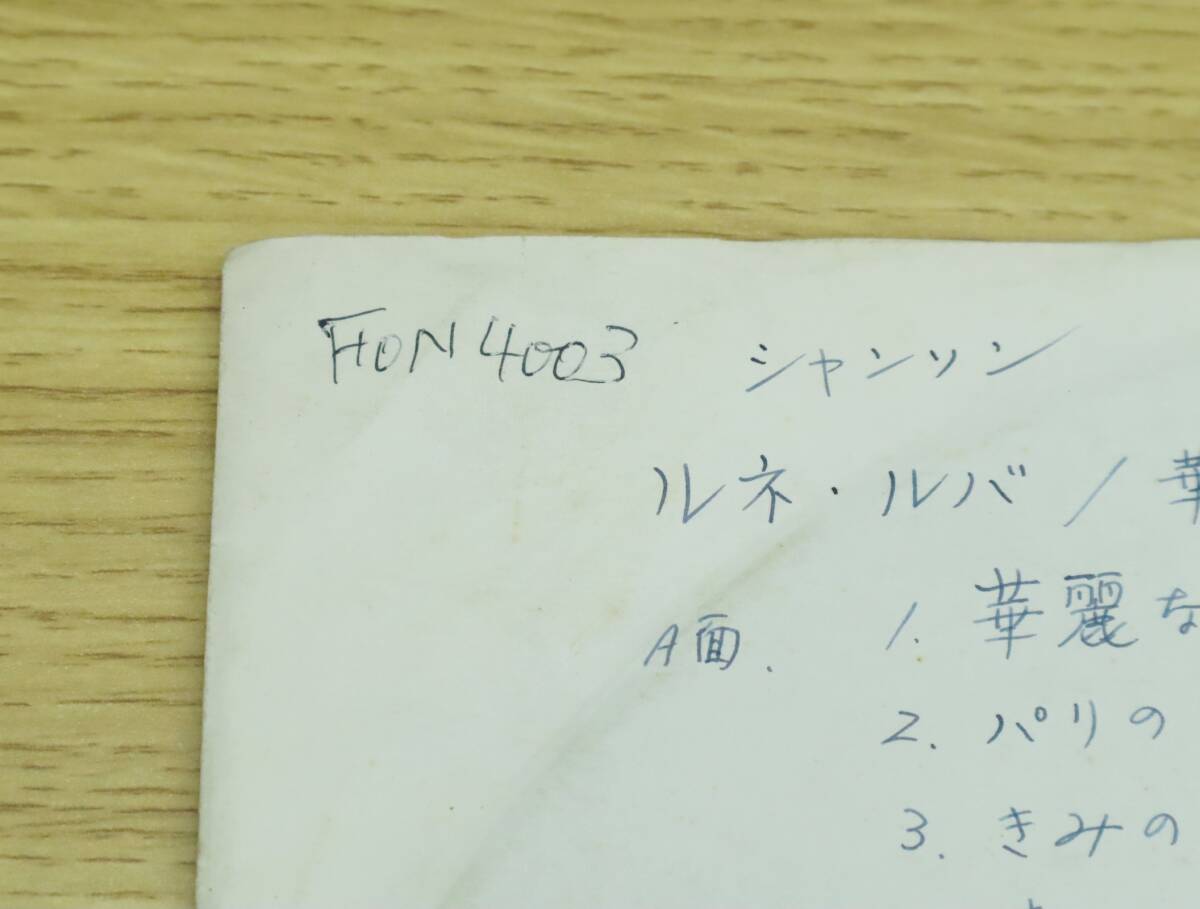 FON 4003 シャンソン
ルネ・ルバ / 華
A面. 1. 華麗な
2. パリの
3. きみの